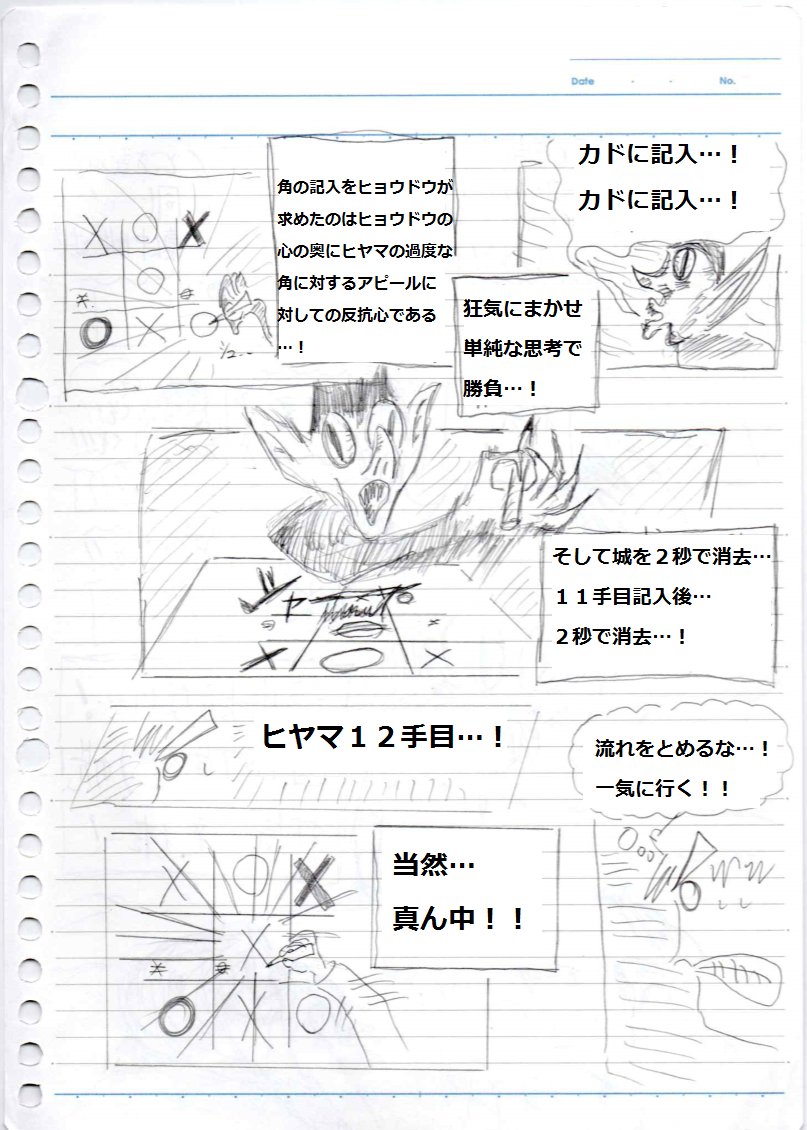 Date ・ ・ No.
カドに記入…！
カドに記入…！
角の記入をヒョウドウが
求めたのはヒョウドウの
心の奥にヒヤマの過度な
角に対するアピールに
対しての反抗心である
…！
狂気にまかせ
単純な思考で
勝負…！
そして城を２秒で消去…
１１手目記入後…
２秒で消去…！
ヒヤマ１２手目…！
流れをとめるな…！
一気に行く！！
当然…
真ん中！！